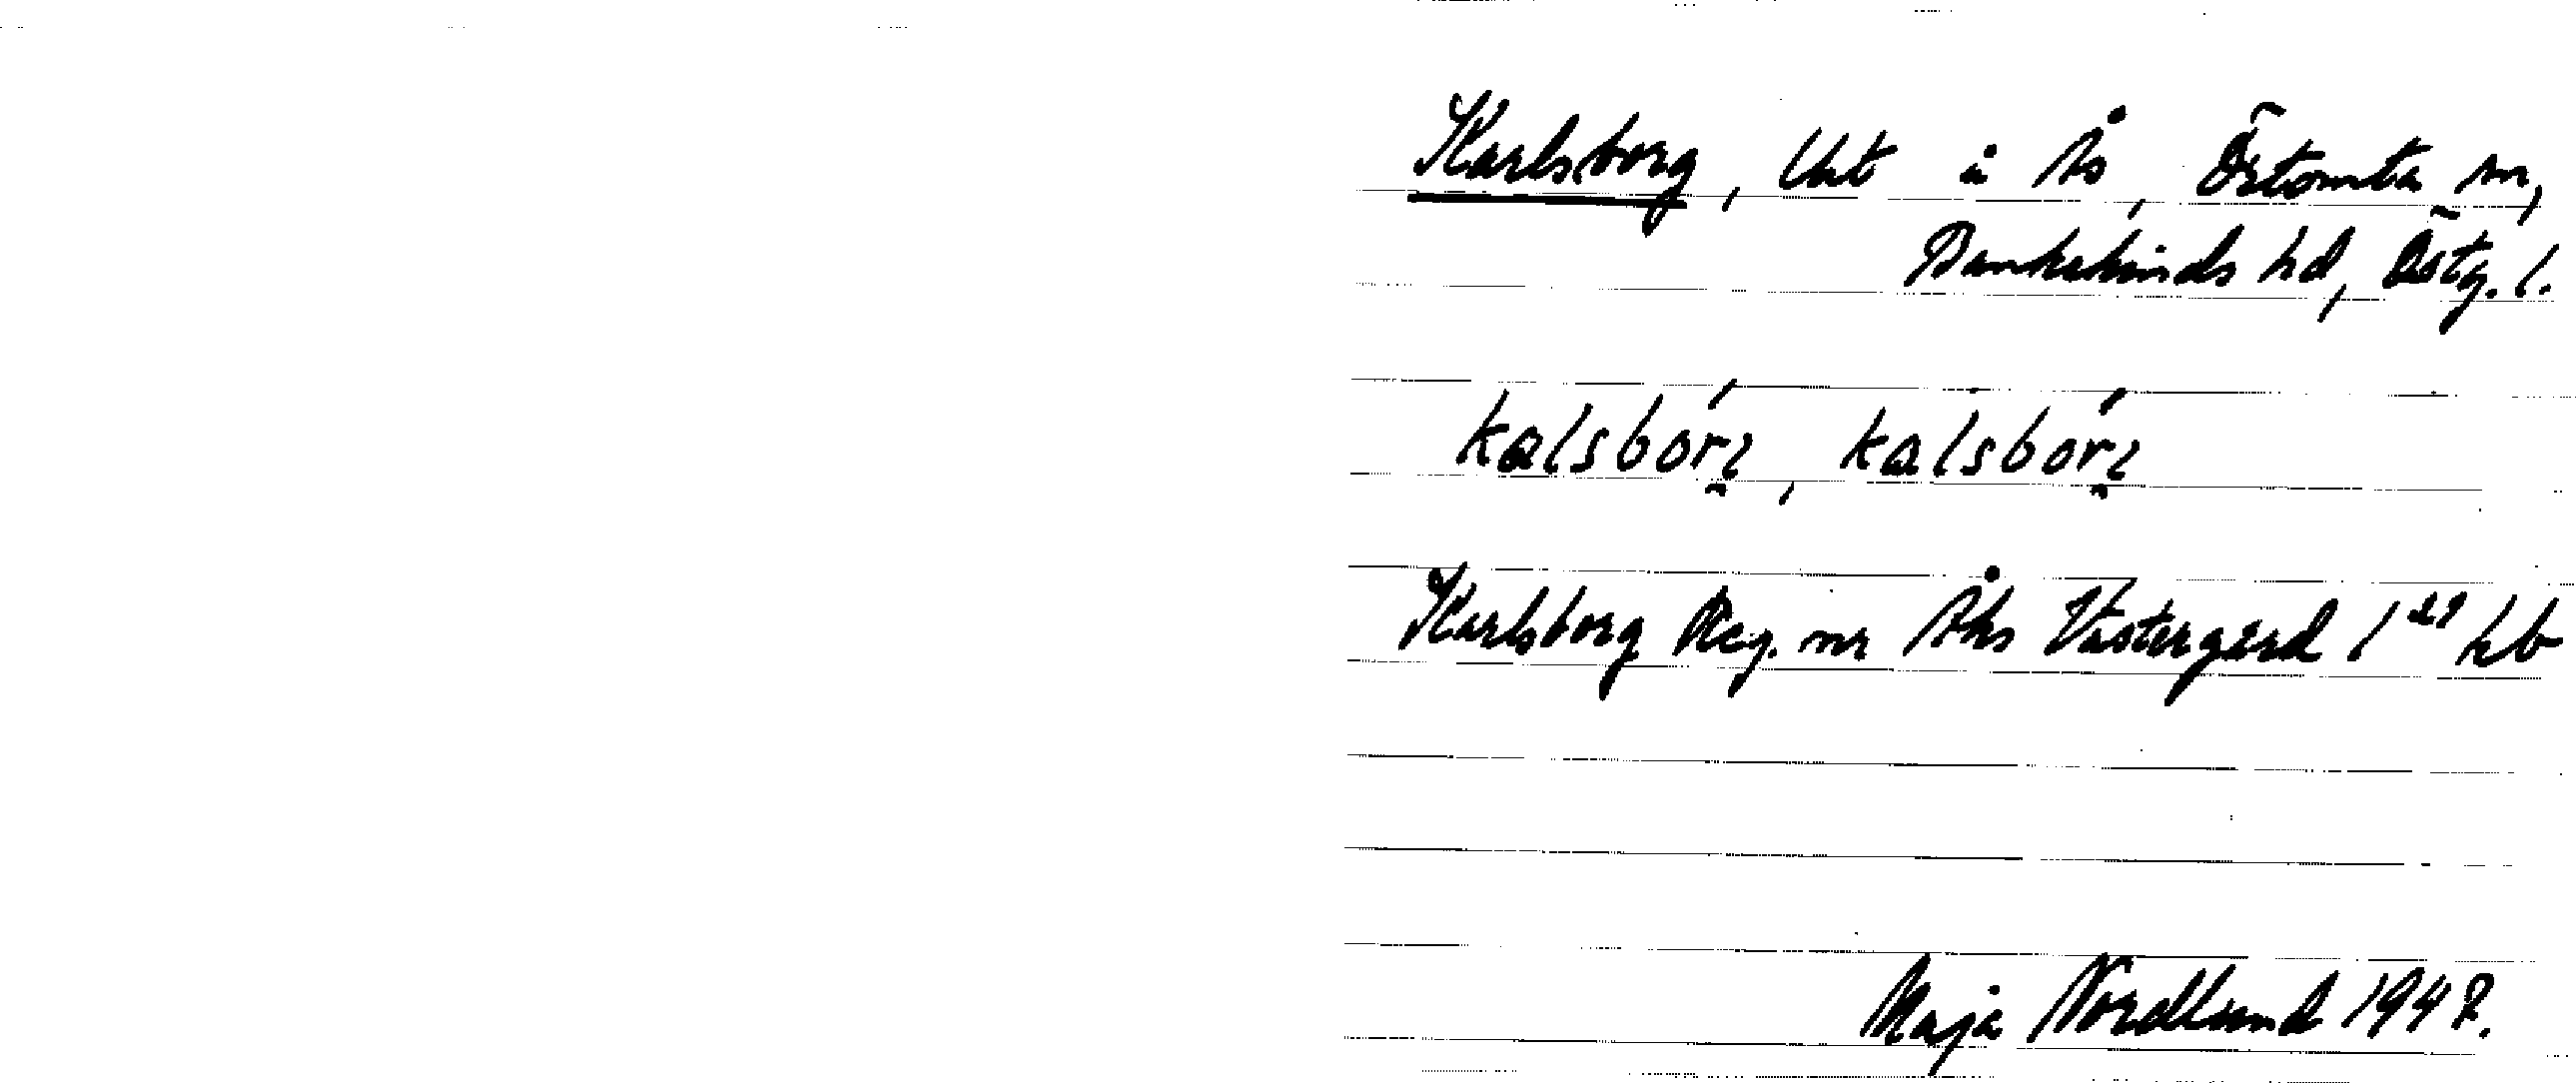 Karlsborg, Uht i Ås, Örtomta sn,
Bankekinds hd, Östg. l.
kalsbór̯ı, kalsbór̯ı
Karlsborg Reg. nr Åhs Västergård 1²⁹ hb
Maja Nordlund 1948.